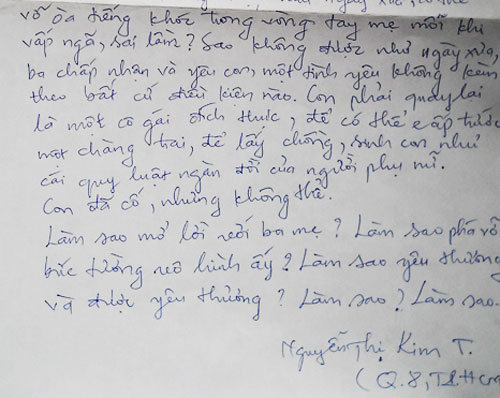 vỡ òa tiếng khóc trong vòng tay mẹ mỗi khi
vấp ngã, sai lầm? Sao không được như ngày xưa,
ba chấp nhận và yêu con, một tình yêu không kèm
theo bất cứ điều kiện nào. Con phải quay lại
là một cô gái đích thực, để có thể cặp
một chàng trai, để lấy chồng, sinh con như
cái quy luật ngàn đời của người phụ nữ.
Con đã cố, nhưng không thể.
Làm sao mở lời với ba mẹ? Làm sao phá vỡ
bức tường vô hình ấy? Làm sao yêu thương
và được yêu thương? Làm sao? Làm sao.
Nguyễn Thị Kim T.
(Q.8, TP.Hcm